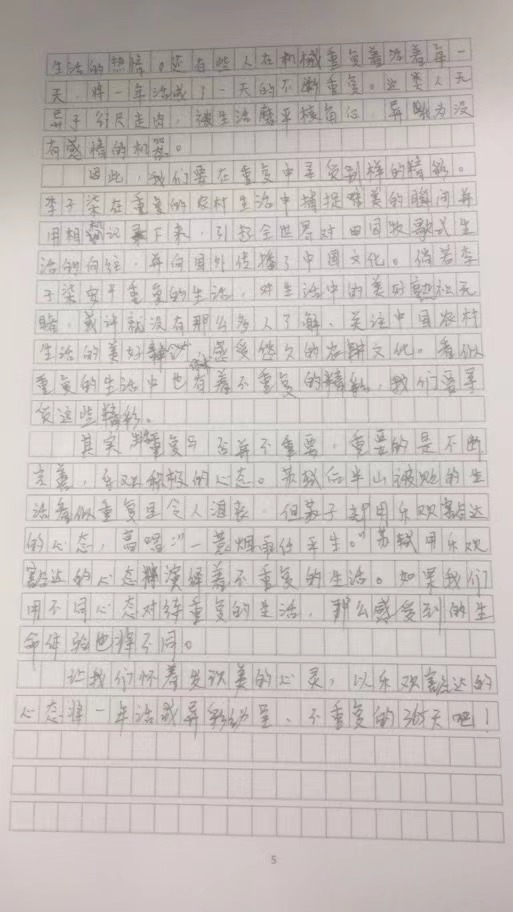 生活的热情。还有些人在机械重复着活着每一
天,将一年活成了一天的不断重复。这类人无
异于行尸走肉,被生活磨平棱角,异化为没
有感情的机器。
因此,我们要在重复中寻觅别样的精彩。
李子柒在重复的农村生活中捕捉唯美的瞬间并
用相机记录下来,引起全世界对田园牧歌式生
活的向往,并向国外传播了中国文化。倘若李
子柒安于重复的生活,对生活中的美好熟视无
睹,或许就没有那么多人了解、关注中国农村
生活的美好,感受悠久的农耕文化。看似
重复的生活中也有着不重复的精彩,我们要寻
觅这些精彩。
其实重复与否并不重要,重要的是不断
完善,乐观积极的心态。苏轼后半山被贬的生
活看似重复且令人沮丧,但苏子却用乐观豁达
的心态,高唱“一蓑烟雨任平生。”苏轼用乐观
豁达的心态演绎着不重复的生活。如果我们
用不同心态对待重复的生活,那么感受到的生
命体验也将不同。
让我们怀着发现美的心灵,以乐观豁达的
心态将一年活成异彩纷呈、不重复的365天吧!
5